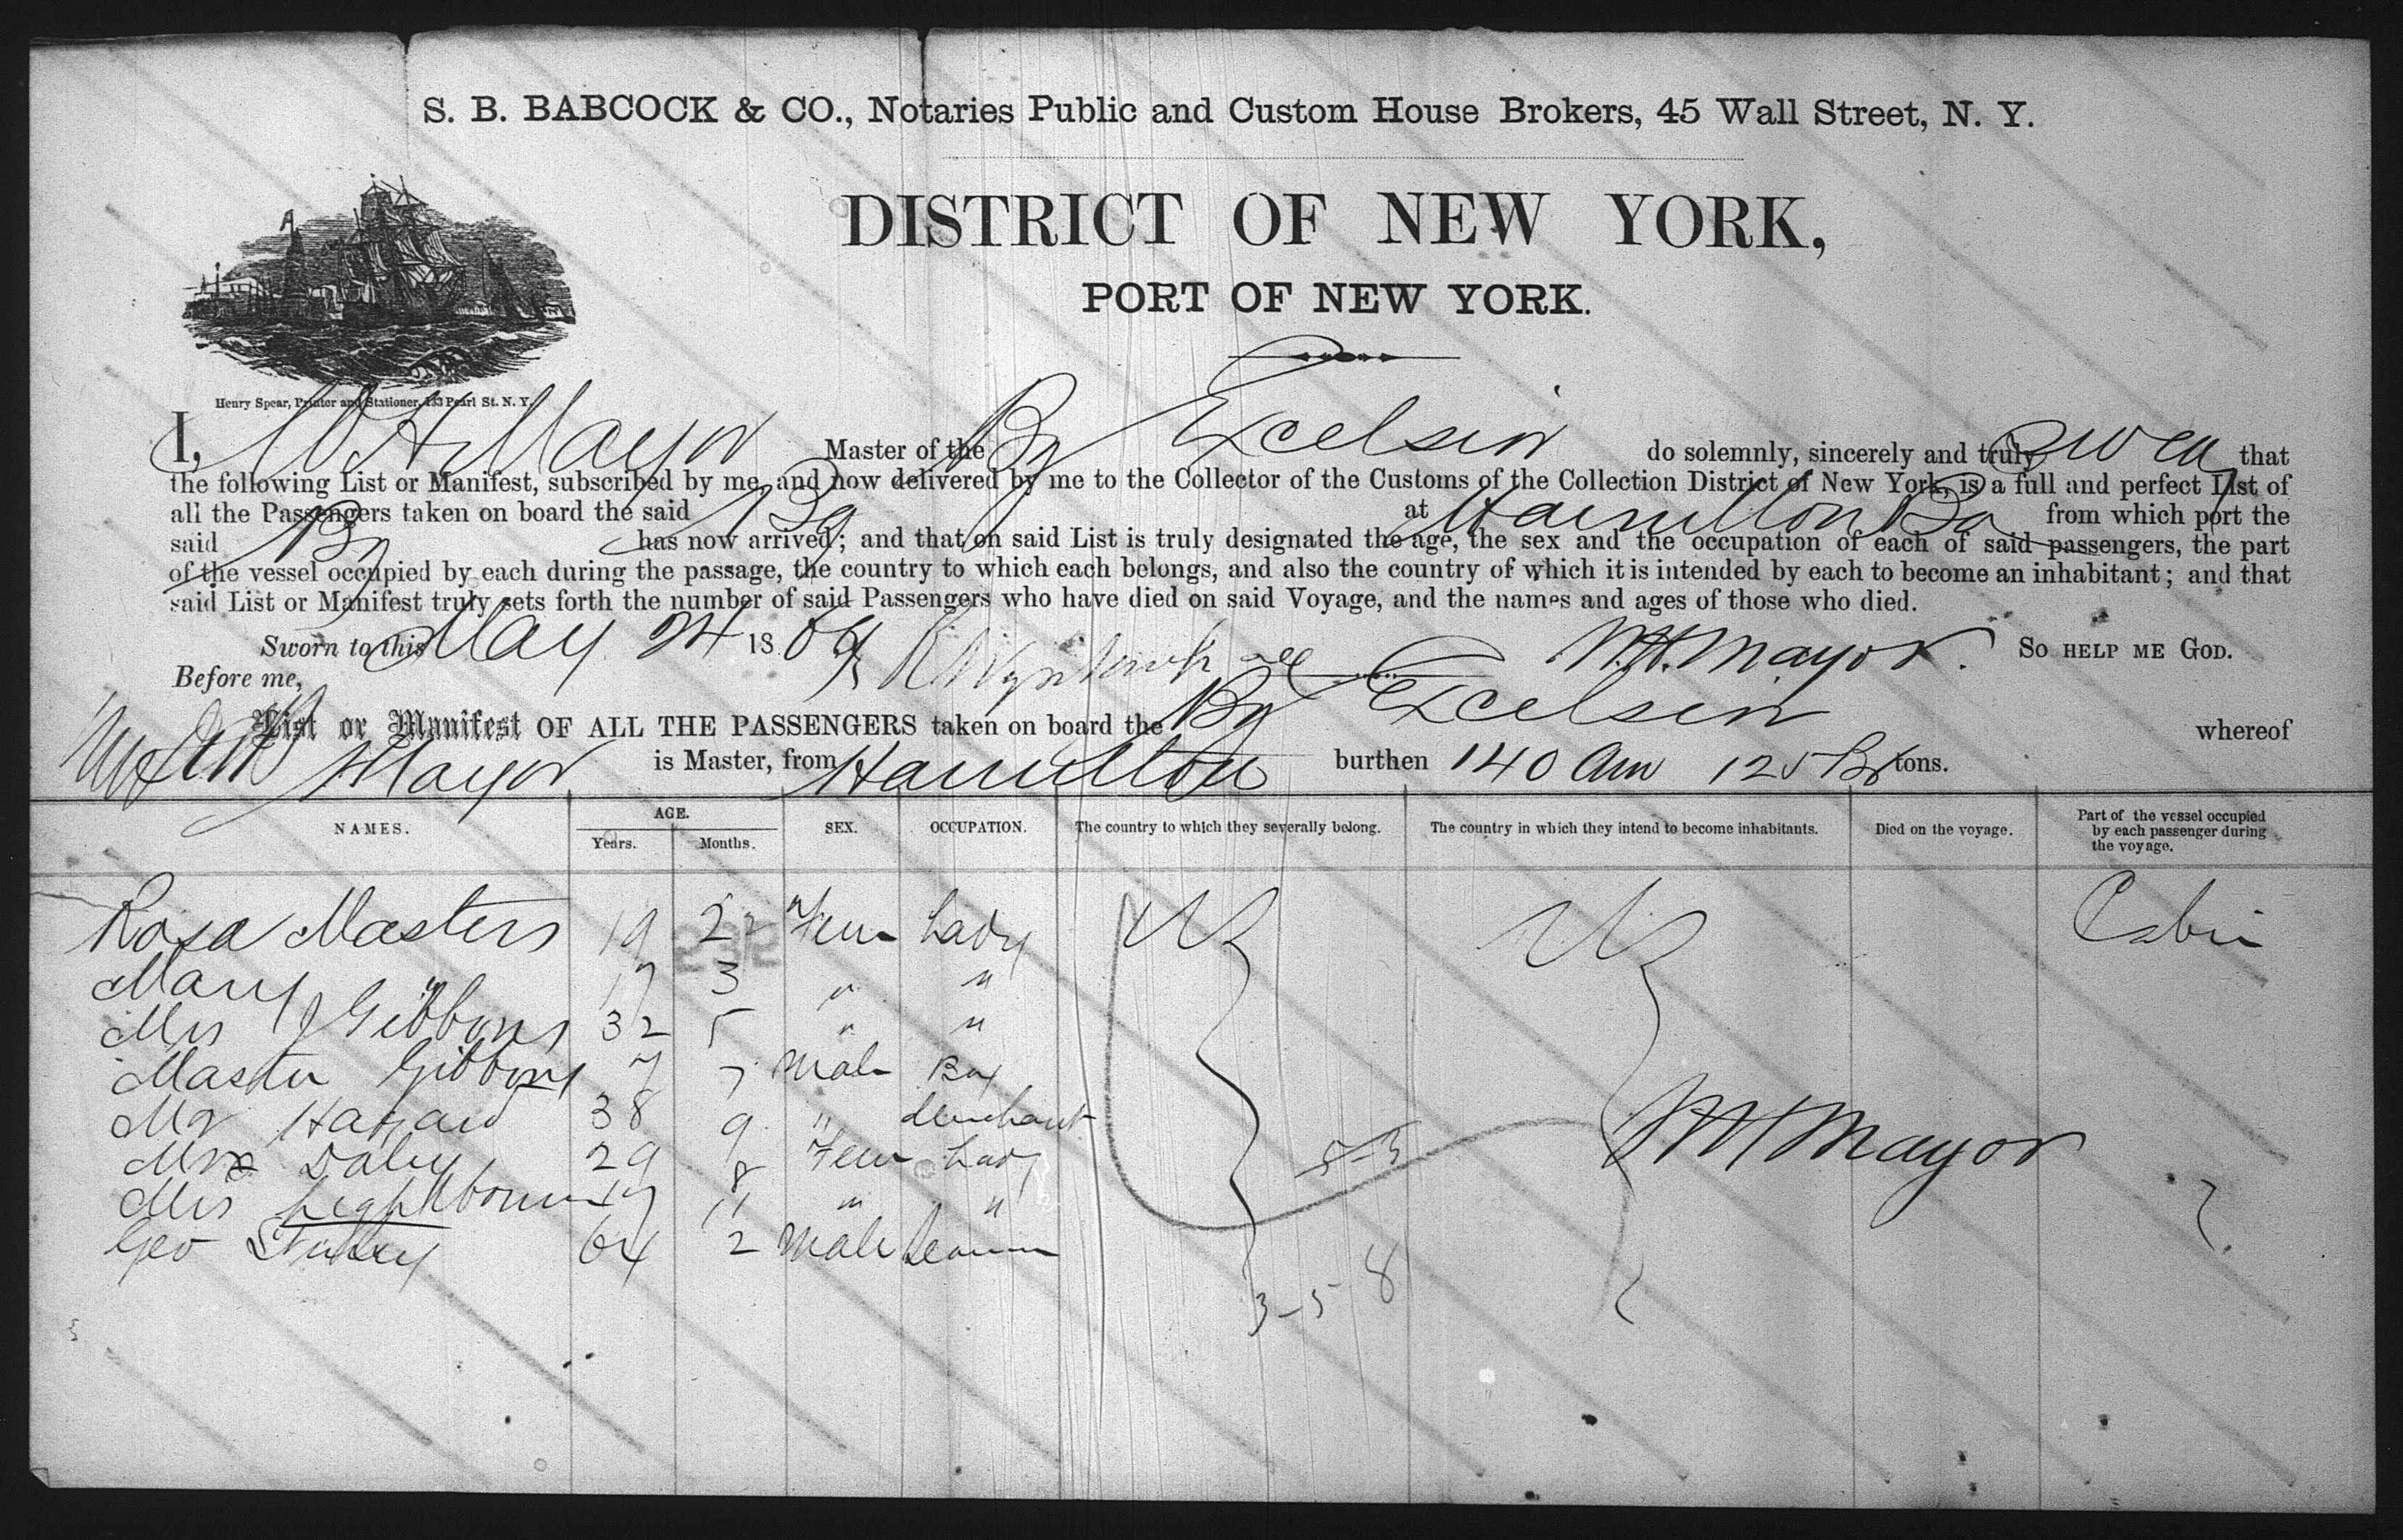 S. B. BABCOCK & CO., Notaries Public and Custom House Brokers, 45 Wall Street, N. Y.
DISTRICT OF NEW YORK,
PORT OF NEW YORK.
Henry Spear, Printer and Stationer, 133 Pearl St. N. Y.
I, W H Mayor Master of the Bg Excelsior do solemnly, sincerely and truly swear that
the following List or Manifest, subscribed by me, and now delivered by me to the Collector of the Customs of the Collection District of New York, is a full and perfect List of
all the Passengers taken on board the said Bg at Hamilton Ba from which port the
said Bg has now arrived; and that on said List is truly designated the age, the sex and the occupation of each of said passengers, the part
of the vessel occupied by each during the passage, the country to which each belongs, and also the country of which it is intended by each to become an inhabitant; and that
said List or Manifest truly sets forth the number of said Passengers who have died on said Voyage, and the names and ages of those who died.
Sworn to this May 24 1864 W. H. Mayor. SO HELP ME GOD.
Before me,
List or Manifest OF ALL THE PASSENGERS taken on board the Bg Excelsior whereof
Mayor is Master, from Hamilton burthen 140 Am 125 Br tons.
NAMES. AGE. Years. Months. SEX. OCCUPATION. The country to which they severally belong. The country in which they intend to become inhabitants. Died on the voyage. Part of the vessel occupied by each passenger during the voyage.
Rosa Masters 19 2 Fem Lady US US Cabin
Mary " 17 3 " "
Mrs J Gibbons 32 5 " "
Master Gibbons 7 7 Male Boy
Mr Hazard 38 9 " Merchant
Mrs Daley 29 8 Fem Lady
Mrs Lightbourn 17 11 " "
Geo 64 2 Male
W H Mayor
5-3
3-5 8